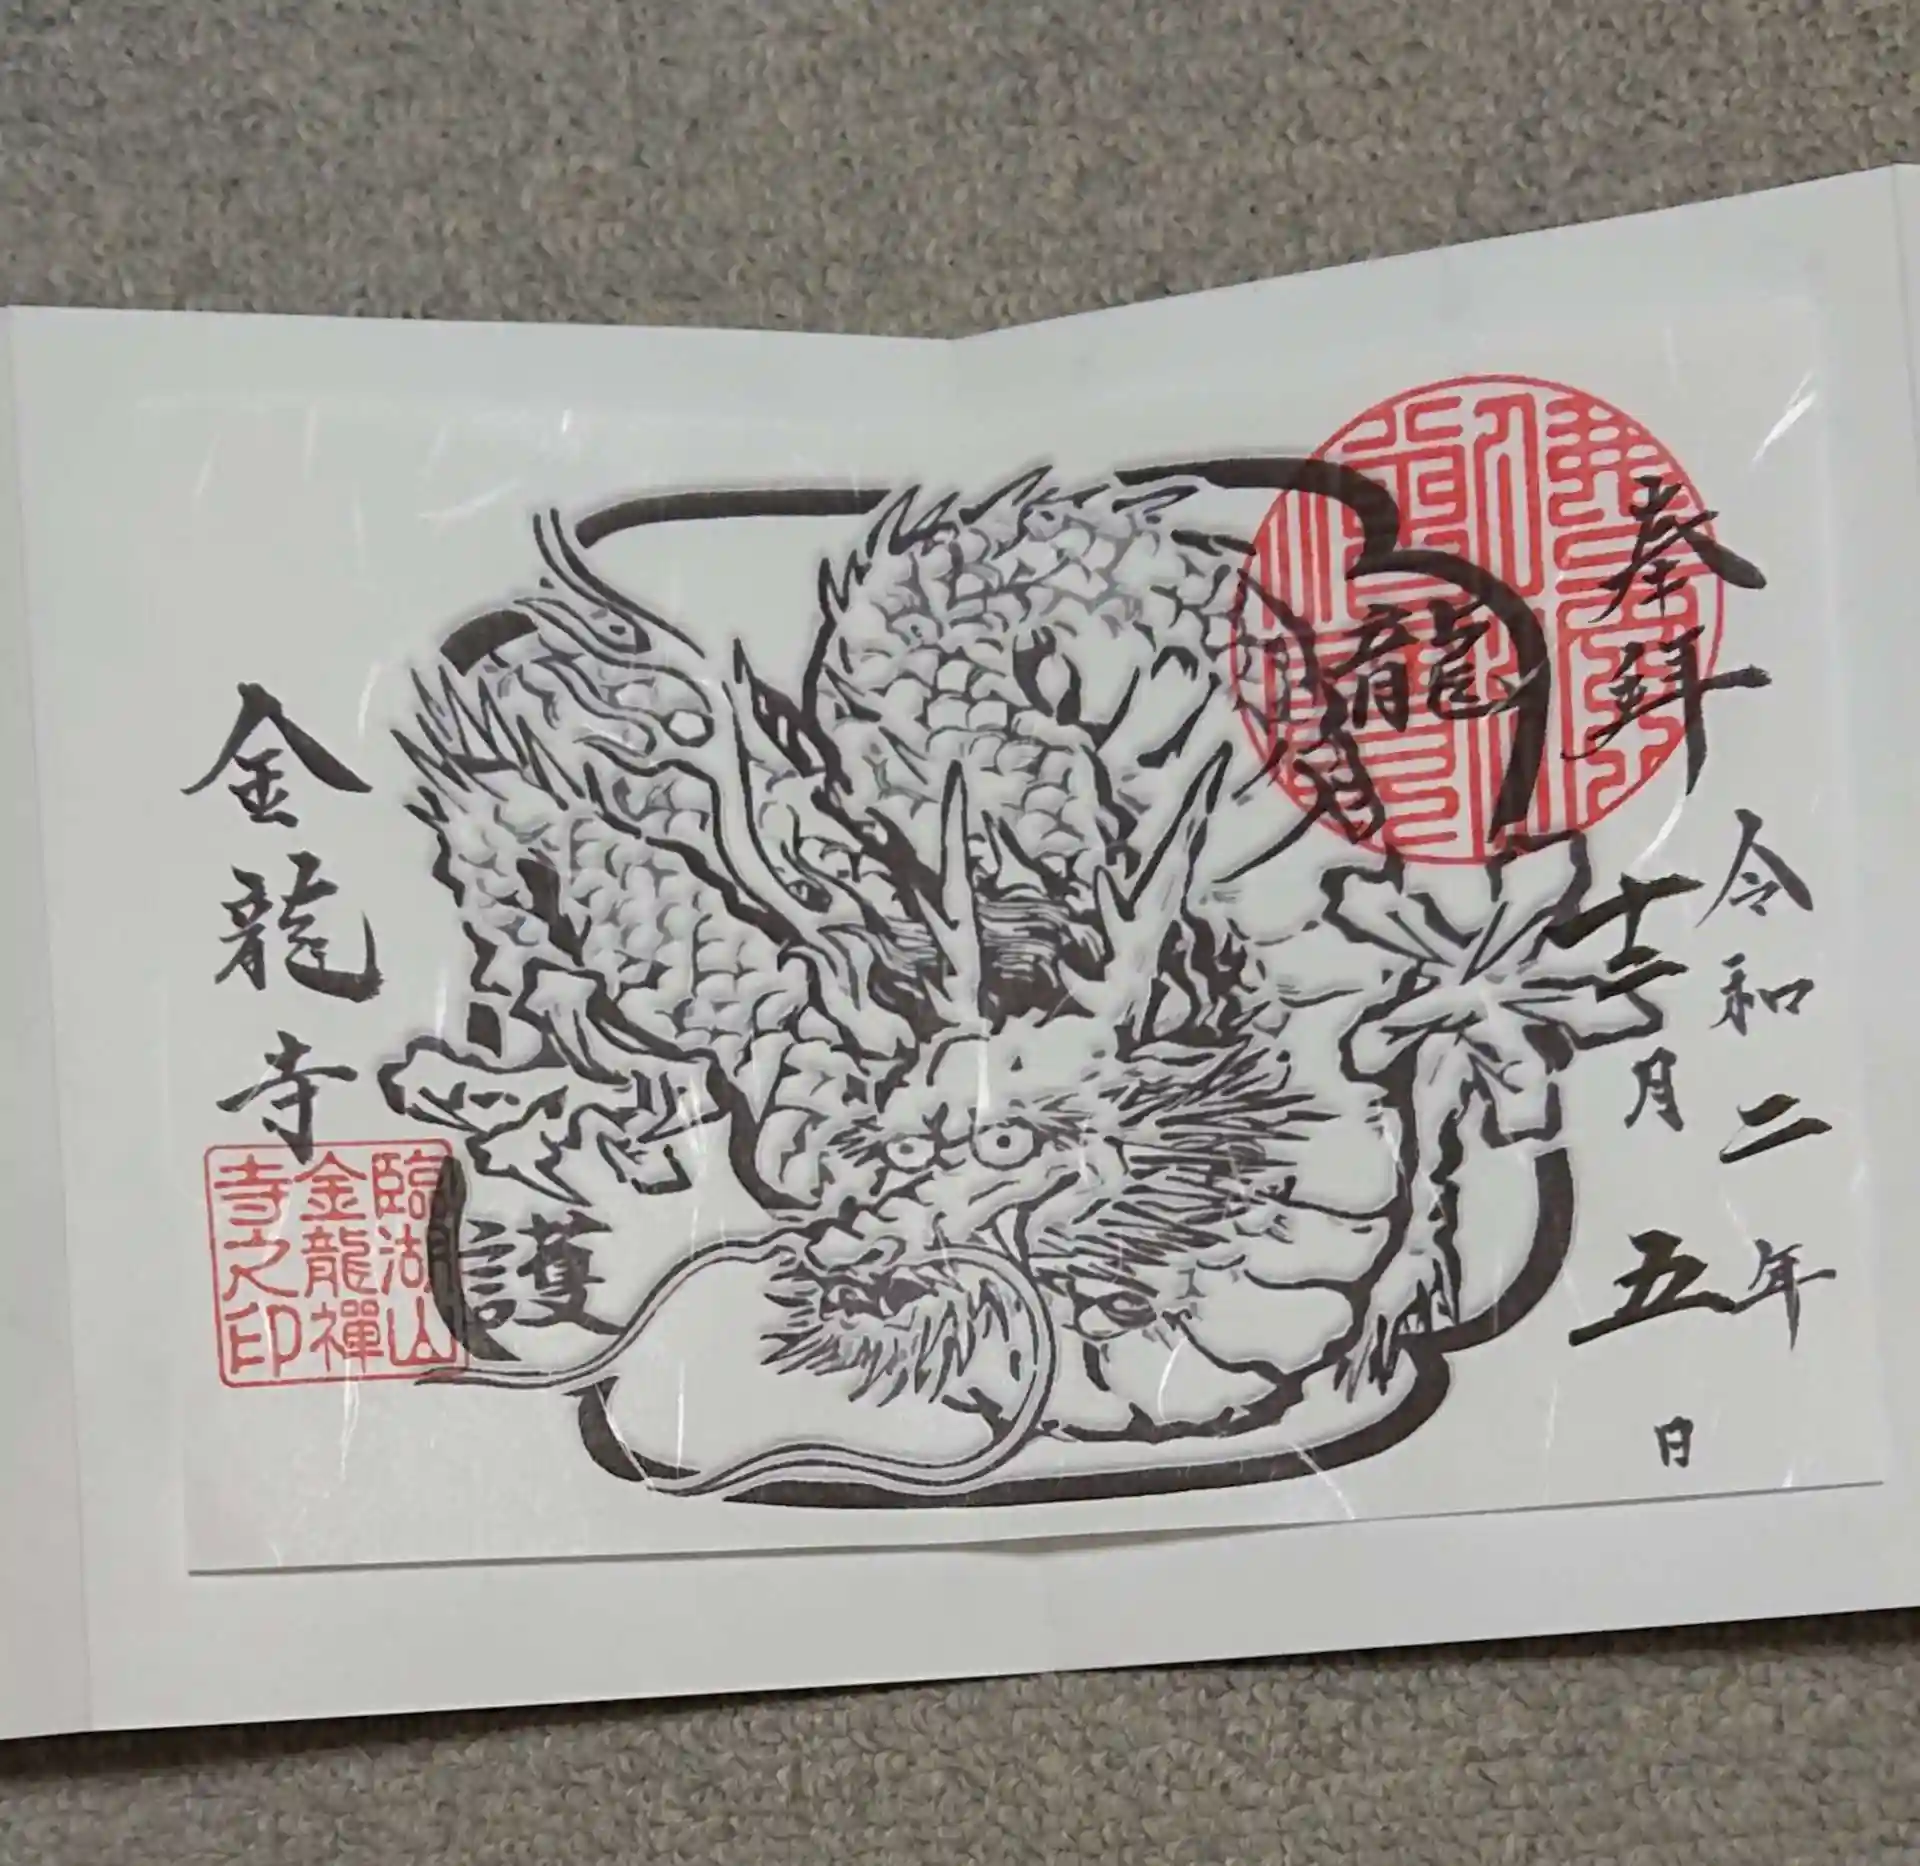 奉拝
令和二年
十二月五日
龍
護
金龍寺
臨湖山
金龍禪
寺之印